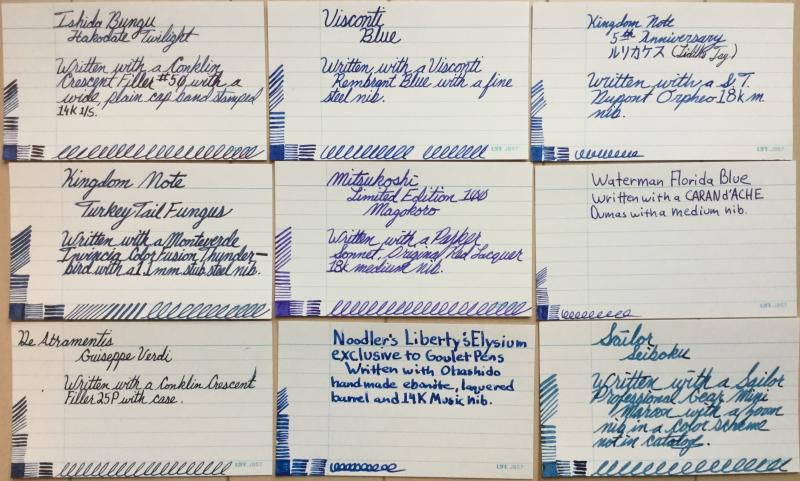 Ishida Bungu
Hakodate Twilight
Written with a Conklin
Crescent Filler #50 with a
wide plain cap band stamped
14K 1/5.
Visconti
Blue
Written with a Visconti
Rembrant Blue with a fine
steel nib.
LIFE J887
Kingdom Note
5th Anniversary
ルリカケス (Lidth's Jay)
Written with a S.T.
Dupont Orpheo 18k m
nib.
LIFE J887
Kingdom Note
Turkey Tail Fungus
Written with a Monteverde
Invincia Color Fusion Thunder-
bird with a 1.1mm stub steel nib.
Mitsukoshi
Limited Edition
Magokoro
Written with a Parker
Sonnet, Original Red Lacquer
18k medium nib.
Waterman Florida Blue
Written with a CARAN d'ACHE
Dumas with a medium nib.
LIFE J887
De Atramentis
Guiseppe Verdi
Written with a Conklin Crescent
Filler 25P with case.
LIFE J887
Noodler's Liberty's Elysium
exclusive to Goulet Pens
Written with Ohashido
handmade ebonite, laquered
barrel and 14K Music nib.
LIFE J887
Sailor
Seiboku
Written with a Sailor
Professional Gear Mini
Maroon with a zoom
nig in a color scheme
not in catalog.